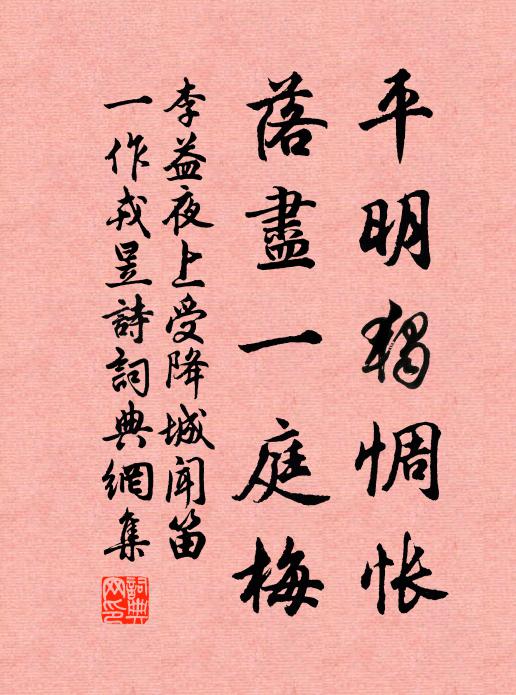 平明獨惆悵
落盡一庭梅
李益夜上受降城闻笛
一作戎昱詩詞典網集
詞典网印